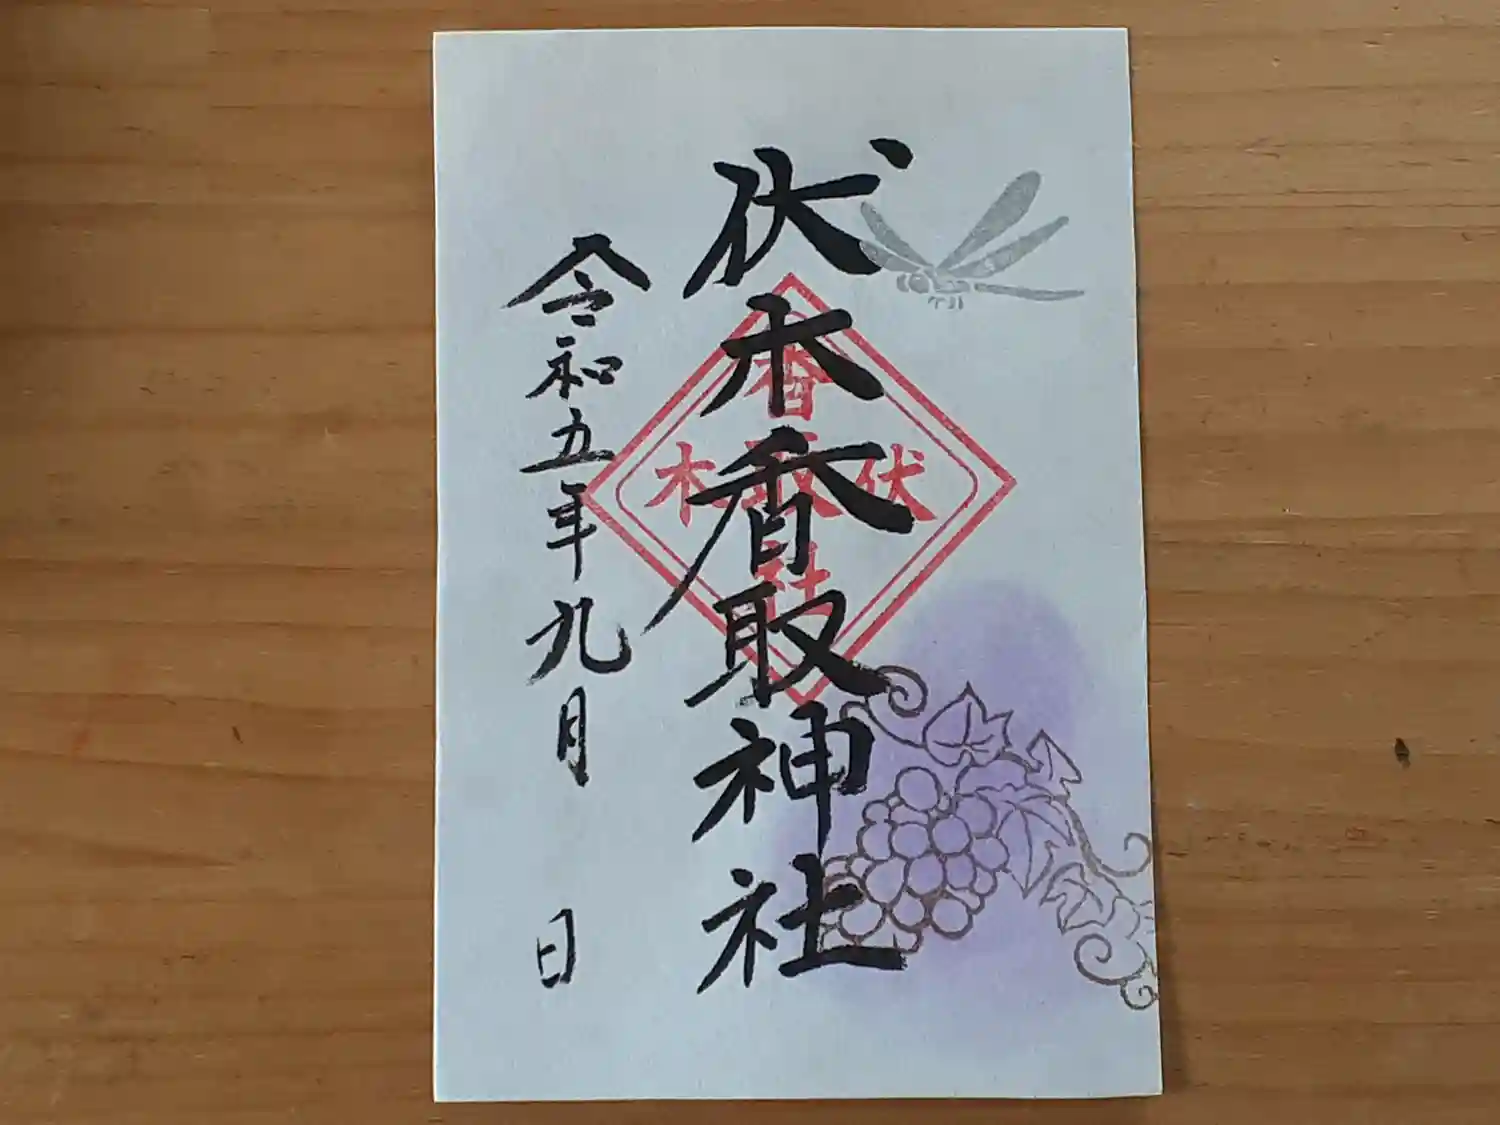 伏木香取神社
令和五年九月 日
香取
伏 木
社